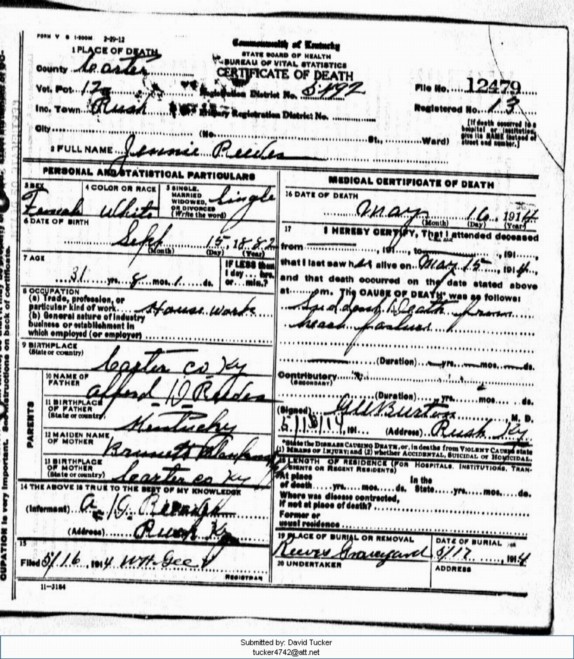 FORM V S 1-500M 2-20-12
Commonwealth of Kentucky
STATE BOARD OF HEALTH
BUREAU OF VITAL STATISTICS
CERTIFICATE OF DEATH
1 PLACE OF DEATH
County Carter
Vot. Pct 12 Registration District No. 5492 File No. 12479
Inc. Town Rush Primary Registration District No. Registered No. 13
City (No. St., Ward)
(If death occurred in a hospital or institution, give its NAME instead of street and number.)
2 FULL NAME Jennie Reeder
PERSONAL AND STATISTICAL PARTICULARS
3 SEX Female
4 COLOR OR RACE White
5 SINGLE, MARRIED, WIDOWED, OR DIVORCED (Write the word) Single
6 DATE OF BIRTH
Sept 15, 1882
(Month) (Day) (Year)
7 AGE
31 yrs. 8 mos. 1 ds.
IF LESS than 1 day... hrs. or... min.?
8 OCCUPATION
(a) Trade, profession, or particular kind of work House work
(b) General nature of industry business or establishment in which employed (or employer)
9 BIRTHPLACE
(State or country) Carter co Ky
PARENTS
10 NAME OF FATHER Alford D Reeder
11 BIRTHPLACE OF FATHER
(State or country) Kentucky
12 MAIDEN NAME OF MOTHER
13 BIRTHPLACE OF MOTHER
(State or country) Carter co Ky
14 THE ABOVE IS TRUE TO THE BEST OF MY KNOWLEDGE
(Informant) A. D.
(Address) Rush Ky
15
Filed 5/16, 1914 WH Gee
REGISTRAR
11-3184
MEDICAL CERTIFICATE OF DEATH
16 DATE OF DEATH
May 16, 1914
(Month) (Day) (Year)
17 I HEREBY CERTIFY, That I attended deceased
from, 191, to, 191,
that I last saw her alive on May 15, 1914,
and that death occurred on the date stated above
at m. The CAUSE OF DEATH* was as follows:
Sudden Death from
heart failure
(Duration) yrs. mos. ds.
Contributory
(SECONDARY)
(Duration) yrs. mos. ds.
(Signed) Burton M. D.
5/16/1914 (Address) Rush Ky
*State the DISEASE CAUSING DEATH, or, in deaths from VIOLENT CAUSES state (1) MEANS OF INJURY; and (2) whether ACCIDENTAL, SUICIDAL or HOMICIDAL.
18 LENGTH OF RESIDENCE (FOR HOSPITALS, INSTITUTIONS, TRANSIENTS OR RECENT RESIDENTS)
At place of death yrs. mos. ds. In the State yrs. mos. ds.
Where was disease contracted, if not at place of death?
Former or usual residence
19 PLACE OF BURIAL OR REMOVAL
Reeves Graveyard
DATE OF BURIAL
5/17, 1914
20 UNDERTAKER
ADDRESS
Submitted by: David Tucker
tucker4742@att.net